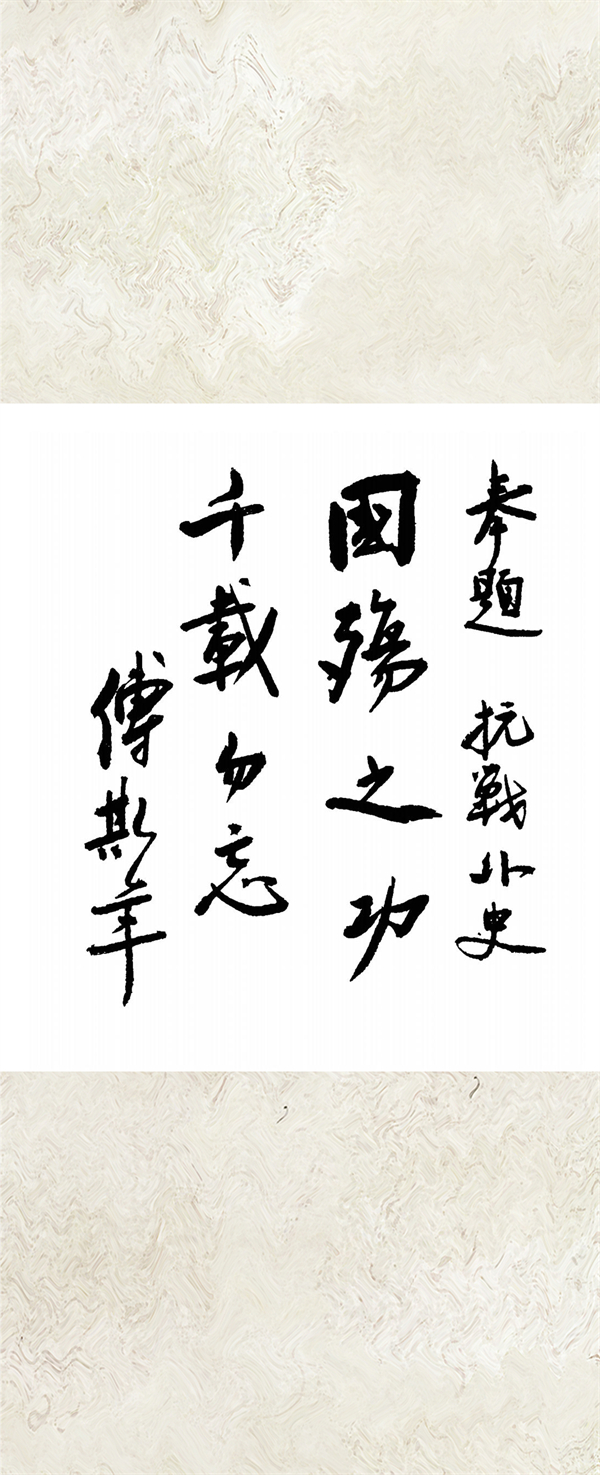 奉題 抗戰小史
國殤之功
千載勿忘
傅斯年